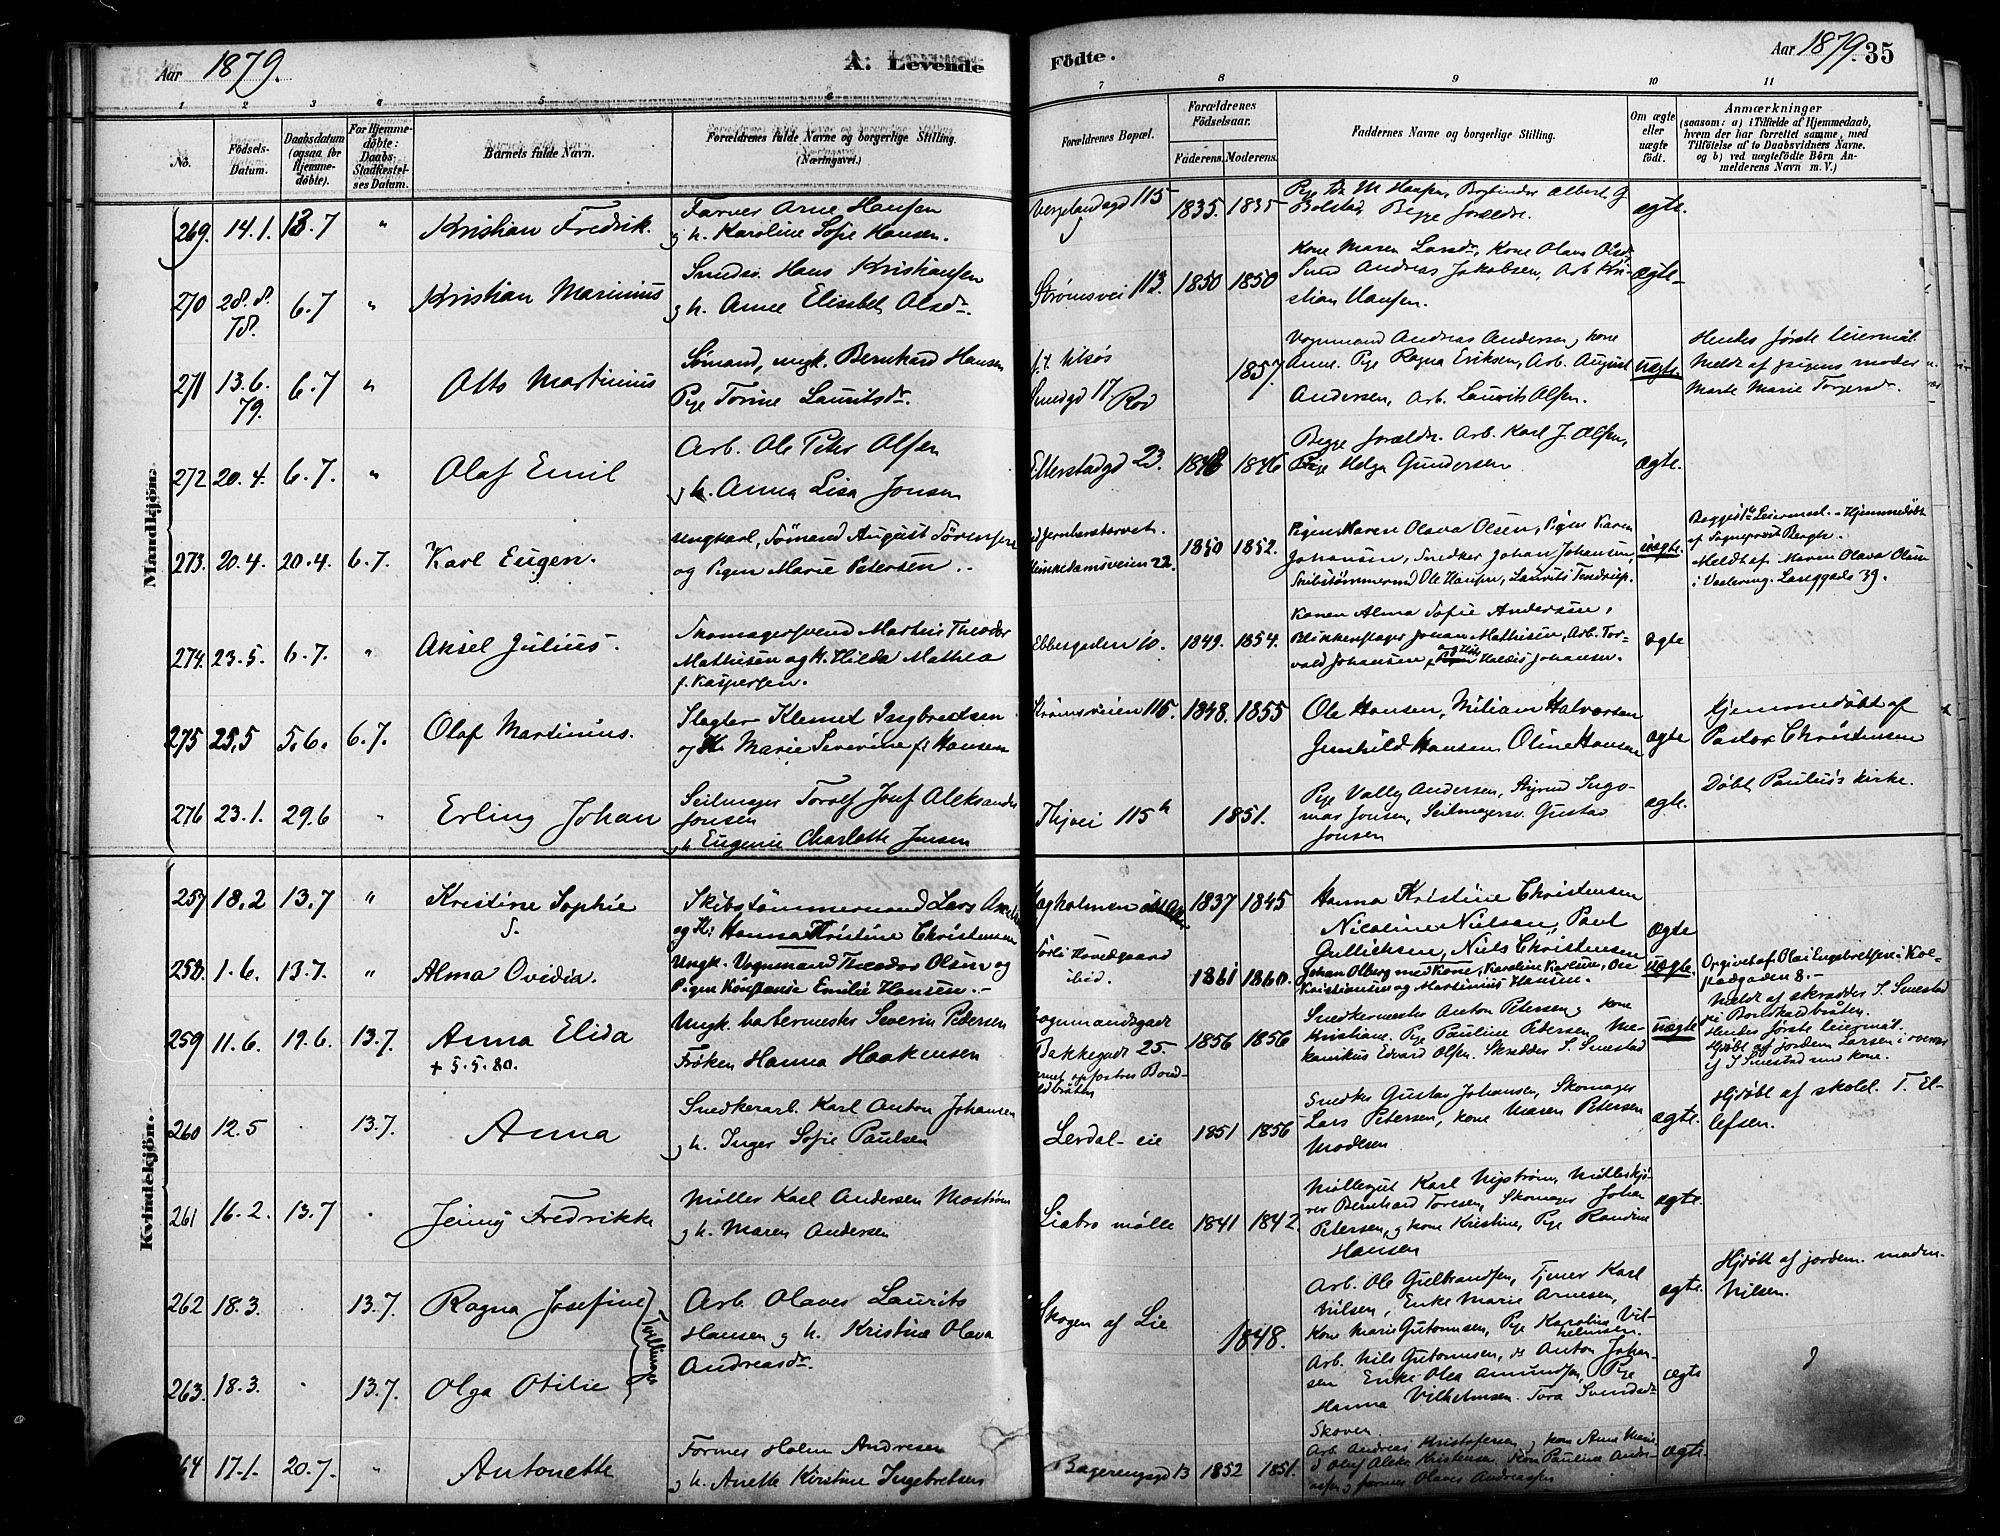 Aar 1879. A: Levende Födte. Aar 1879. 35
1 2 3 4 5 6 7 8 9 10 11
No. Födsels-Datum. Daabsdatum (ogsaa for Hjemmedöbte). For Hjemmedöbte: Daabs Stadfæstelses Datum. Barnets fulde Navn. Forældrenes fulde Navne og borgerlige Stilling. (Næringsvei.) Forældrenes Bopæl. Forældrenes Födselsaar. Faderens. Moderens. Faddernes Navne og borgerlige Stilling. Om ægte eller uægte födt. Anmærkninger (saasom: a) i Tilfælde af Hjemmedaab, hvem der har forrettet samme, med Tilföielse af to Daabsvidners Navne. og b) ved uægtefödte Börn Anmelderens Navn m. V.)
Mandkjön:
269. 14.1. 13.7 " Kristian Fredrik. Farver Arne Hansen
g h. Karoline Sofie Hansen. 115 1835. 1835 Bolstad, Begge foreldr. ægte.
270 28.8.78. 6.7 " Kristian Marinius Hans Kristiansen
g h. Anne Elisabet Olsdr. Strømsvei 113. 1850 1850 Kone Maren Larsdr, Kone Olava Olsdr
Andreas Jakobsen, Arb. Kristian Hansen. ægte
271 13.6.79. 6.7 " Otto Martinius Sømand, ungk. Bernhard Hansen
Pige Torine Lauritsdr. 17 1857. Vognmand Andreas Andersen, kone
Anne. Pige Ragna Eriksen, Arb. August
Andersen, Arb. Laurits Olsen. uægte. Hendes første leiermål
Meldt af pigens moder
Marte Marie Torgersdr.
272 20.4. 6.7. " Olaf Emil Arb. Ole Peter Olsen
g h. Anna Lisa Jonsen Etterstadgd 23. 1848 1846 Begge foreldr. Arb. Karl J. Olsen,
Pige Helga Gundersen ægte.
273. 20.4. 20.4. 6.7. Karl Eugen. Ungkarl, Sømand August Sørensen
og Pigen Marie Petersen. Munkedamsveien 22. 1850 1852. Pigen Maren Olava Olsen, Pigen Karen
Johansen, Snedker Johan Johansen,
Skibstømmermd Ole Hansen, Laurits Tendrup. uægte. Begges 1ste Leiermaal. Hjemmedøbt
af Sogneprest Bergh.
Meldt af Maren Olava Olsen
i Vaalereng. Langgade 39.
274. 23.5. 6.7. " Aksel Julius. Skomagersvend Martin Theodor
Mathisen og k. Hilda Mathea
f. Kaspersen. Ebbergaden 10. 1849. 1854. Konen Alma Sofie Andersen,
Blikkenslager Johan Mathisen, Arb. Torvald
Johansen, Haldis Johansen. ægte
275 25.5 5.6. 6.7. Olaf Martinius. Slagter Klemet Ingbretsen
og K. Marie Severine f. Hansen Strømsveien 115. 1848. 1855 Ole Hansen, Halvorsen
Hansen, Oline Hansen ægte Hjemmedøbt af
Pastor Christensen
276 23.1. 29.6 " Erling Johan Seilmager Torolf Josef Aleksander
Jonsen
g h. Eugenie Charlotte Jensen 115 1851. Pige Vally Andersen, Styrmd Ingomar
Jonsen, Seilmagersv. Gustav
Jonsen ægte. Døbt Paulus's kirke.
Kvindekjön:
257 18.2 13.7 " Kristine Sophie Skibstømmermand Lars
og K. Hanna Kristine Christensen 1837 1845 Hanna Kristine Christensen
Nicoline Nielsen, Paul
Gullichsen, Niels Christensen ægte
258. 1.6. 13.7. " Alma Ovidia. Ungk. Vognmand Theodor Olsen og
Pigen Konstanse Emilie Hansen. ibid. 1861 1860. Johan Olberg med Kone, Karoline Karlsen, Ole
Kristiansen og Martinius Hansen. uægte. Opgivet af Olai Engebretsen i
8.
259 11.6. 19.6. 13.7. Anna Elida
+ 5.5.80. Ungk. barbermester Severin Pedersen
Frøken Hanna Haakensen Bakkegadt 25. 1856 1856 Snedkermester Anton Petersen, kone
Kristiane. Pige Pauline Pedersen, Mekanikus
Edvard Olsen. Skredder S. Smestad uægte Meldt af skrædder S. Smestad
Hendes første leiermål.
Hjdøbt af jordem. Larsen
S. Smestad med kone.
260 12.5 . 13.7. Anna Snedkerarb. Karl Anton Johansen
g h. Inger Sofie Paulsen Lerdal eie 1851 1856 Snedker Gustav Johansen, Skomager
Lars Petersen, kone Maren Petersen
ægte. Hjdøbt af skolel. T. Ellefsen.
261 16.2. 13.7 . Jenny Fredrikke Møller Karl Andersen Moström
g h. Maren Andersen Liabro mølle 1841 1842. Møllegut Karl Nystrøm, Møllerkjører
Bernhard Toresen, Skomager Johan
Petersen, g kone Kristine, Pige Randine
Hansen ægte.
262 18.3. . 13.7. Ragna Josefine Tvillinger Arb. Olaves Laurits
Hansen g h. Kristine Olava
Andreasdr. Skogen af Lie 1848. Arb. Ole Gulbrandsen, Tjener Karl
Nilsen, Enke Marie Arnesen,
Kone Marie Gutormsen, Pige Karoline Vilhelmsen. ægte. Hjdøbt af jordem. madm.
Nilsen.
263. 18.3. . 13.7. Olga Otilie Arb. Nils Gutormsen, do Anton Johansen
Enke Olea Amundsen, Pige
Hanna Vilhelmsen. Tora
Skoven ægte
264 17.1. 20.7. " Antonette Former Holm Andresen
g h. Anette Kirstine Ingebretsen 13 1852 1851. Arb. Andreas Kristofersen g kone Anna Marie
Kone Pauline
g former Olaves Andreassen ægte.